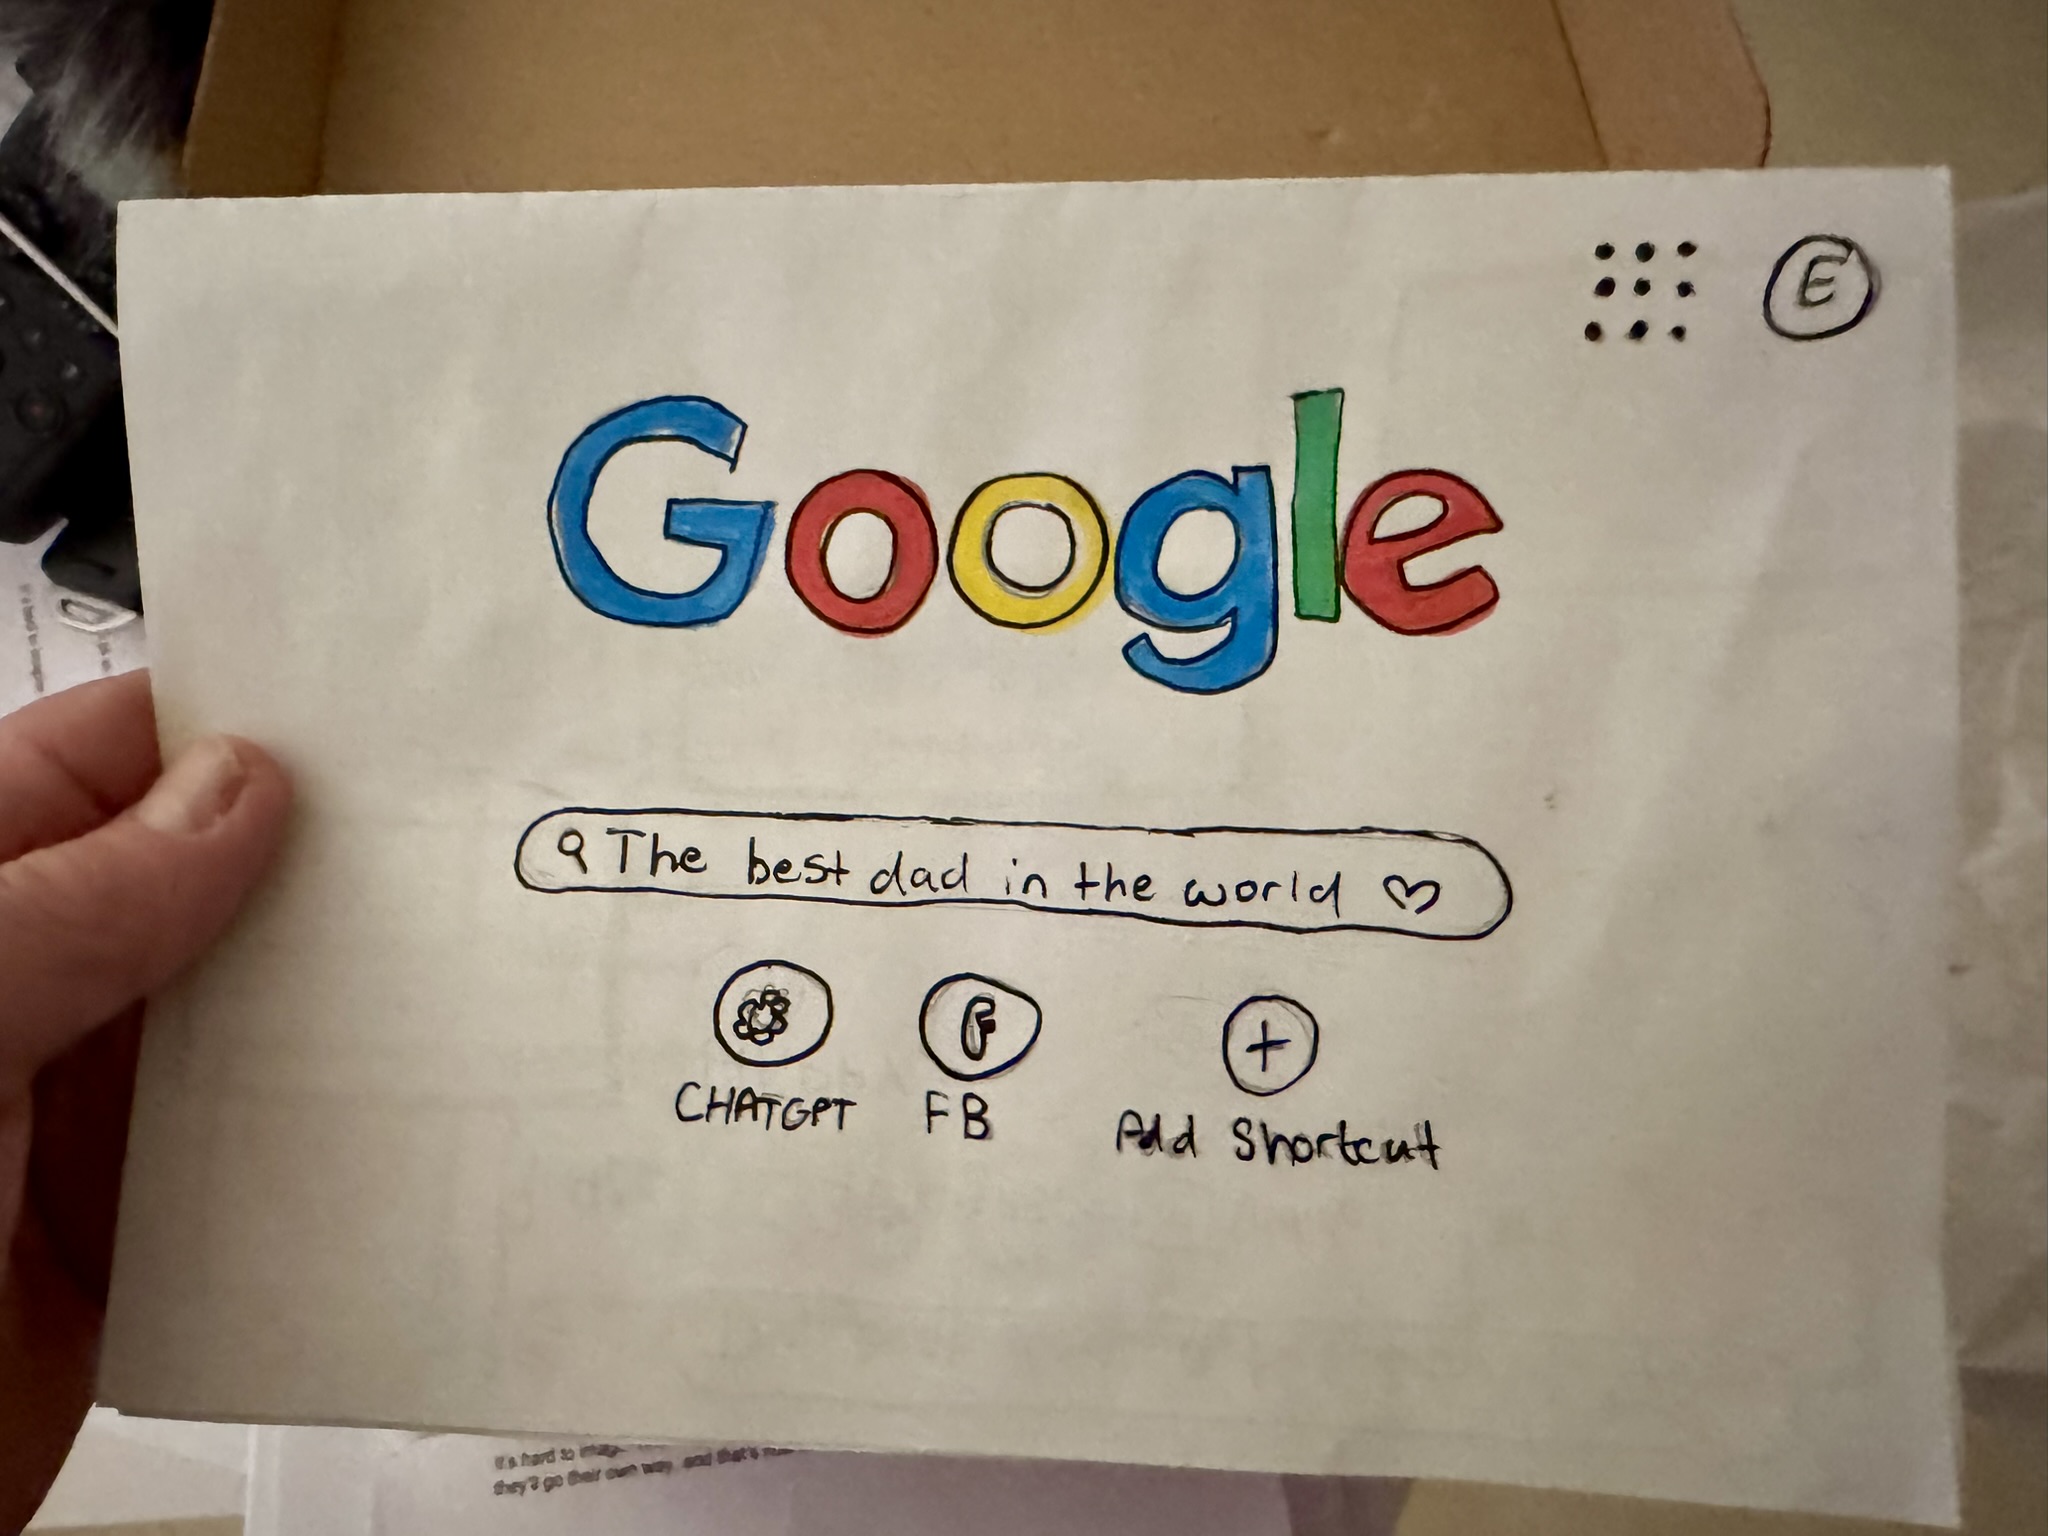 E
Google
The best dad in the world ♡
F
CHATGPT
FB
+
Add Shortcut
it's hard to
they'll go their own way and that's